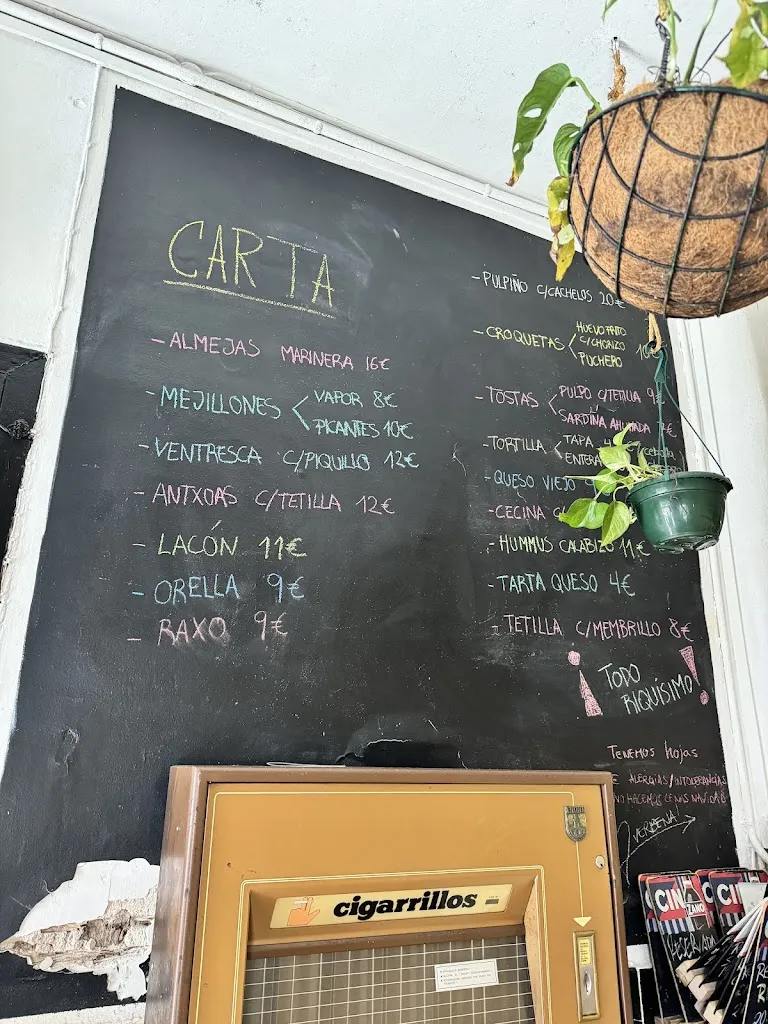 CARTA
- ALMEJAS MARINERA 16€
- MEJILLONES < VAPOR 8€
PICANTES 10€
- VENTRESCA C/PIQUILLO 12€
- ANTXOAS C/TETILLA 12€
- LACÓN 11€
- ORELLA 9€
- RAXO 9€
- PULPIÑO C/CACHELOS 20€
- CROQUETAS < HUEVO FRITO
C/CHORIZO
PUCHERO
- TOSTAS < PULPO C/TETILLA 9€
SARDIÑA AHUMADA
- TORTILLA < TAPA
ENTERA
- QUESO VIEJO
- CECINA
- HUMMUS CALABIZO 11€
- TARTA QUESO 4€
- TETILLA C/MEMBRILLO 8€
¡TODO
RIQUÍSIMO!
TENEMOS hojas
ALERGIAS/INTOLERANCIAS
NO HACEMOS CENAS NAVIDAD
VERBENA
cigarrillos
CINZANO
CIN
RESERVADO